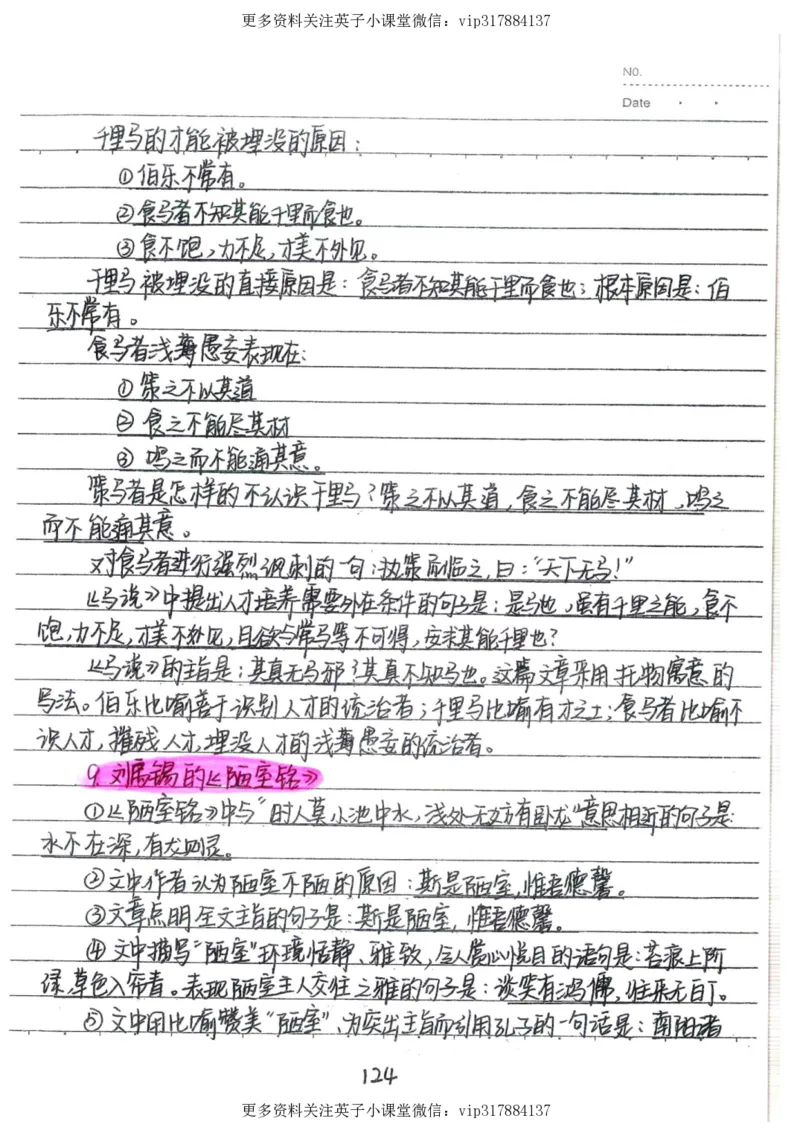 更多资料关注英子小课堂微信：vip317884137
NO.
Date
千里马的才能被埋没的原因：
①伯乐不常有。
②食马者不知其能千里而食也。
③食不饱，力不足，才美不外见。
千里马被埋没的直接原因是：食马者不知其能千里而食也；根本原因是：伯
乐不常有。
食马者浅薄愚妄表现在：
①策之不以其道
②食之不能尽其材
③鸣之而不能通其意。
策马者是怎样的不认识千里马？策之不以其道，食之不能尽其材，鸣之
而不能通其意。
对食马者进行强烈讽刺的一句：执策而临之，曰：“天下无马！”
《马说》中提出人才培养需要外在条件的句子是：是马也，虽有千里之能，食不
饱，力不足，才美不外见，且欲与常马等不可得，安求其能千里也？
《马说》的主旨是：其真无马邪？其真不知马也。这篇文章采用托物寓意的
写法。伯乐比喻善于识别人才的统治者；千里马比喻有才之士；食马者比喻不
识人才，摧残人才，埋没人才的浅薄愚妄的统治者。
9.刘禹锡的《陋室铭》
①《陋室铭》中与“时人莫小池中水，浅处无妨有卧龙”意思相近的句子是：
水不在深，有龙则灵。
②文中作者认为陋室不陋的原因：斯是陋室，惟吾德馨。
③文章点明全文主旨的句子是：斯是陋室，惟吾德馨。
④文中描写“陋室”环境恬静、雅致，令人赏心悦目的语句是：苔痕上阶
绿，草色入帘青。表现陋室主人交往之雅的句子是：谈笑有鸿儒，往来无白丁。
⑤文中用比喻赞美“陋室”、为突出主旨而引用孔子的一句话是：南阳诸
124
更多资料关注英子小课堂微信：vip317884137